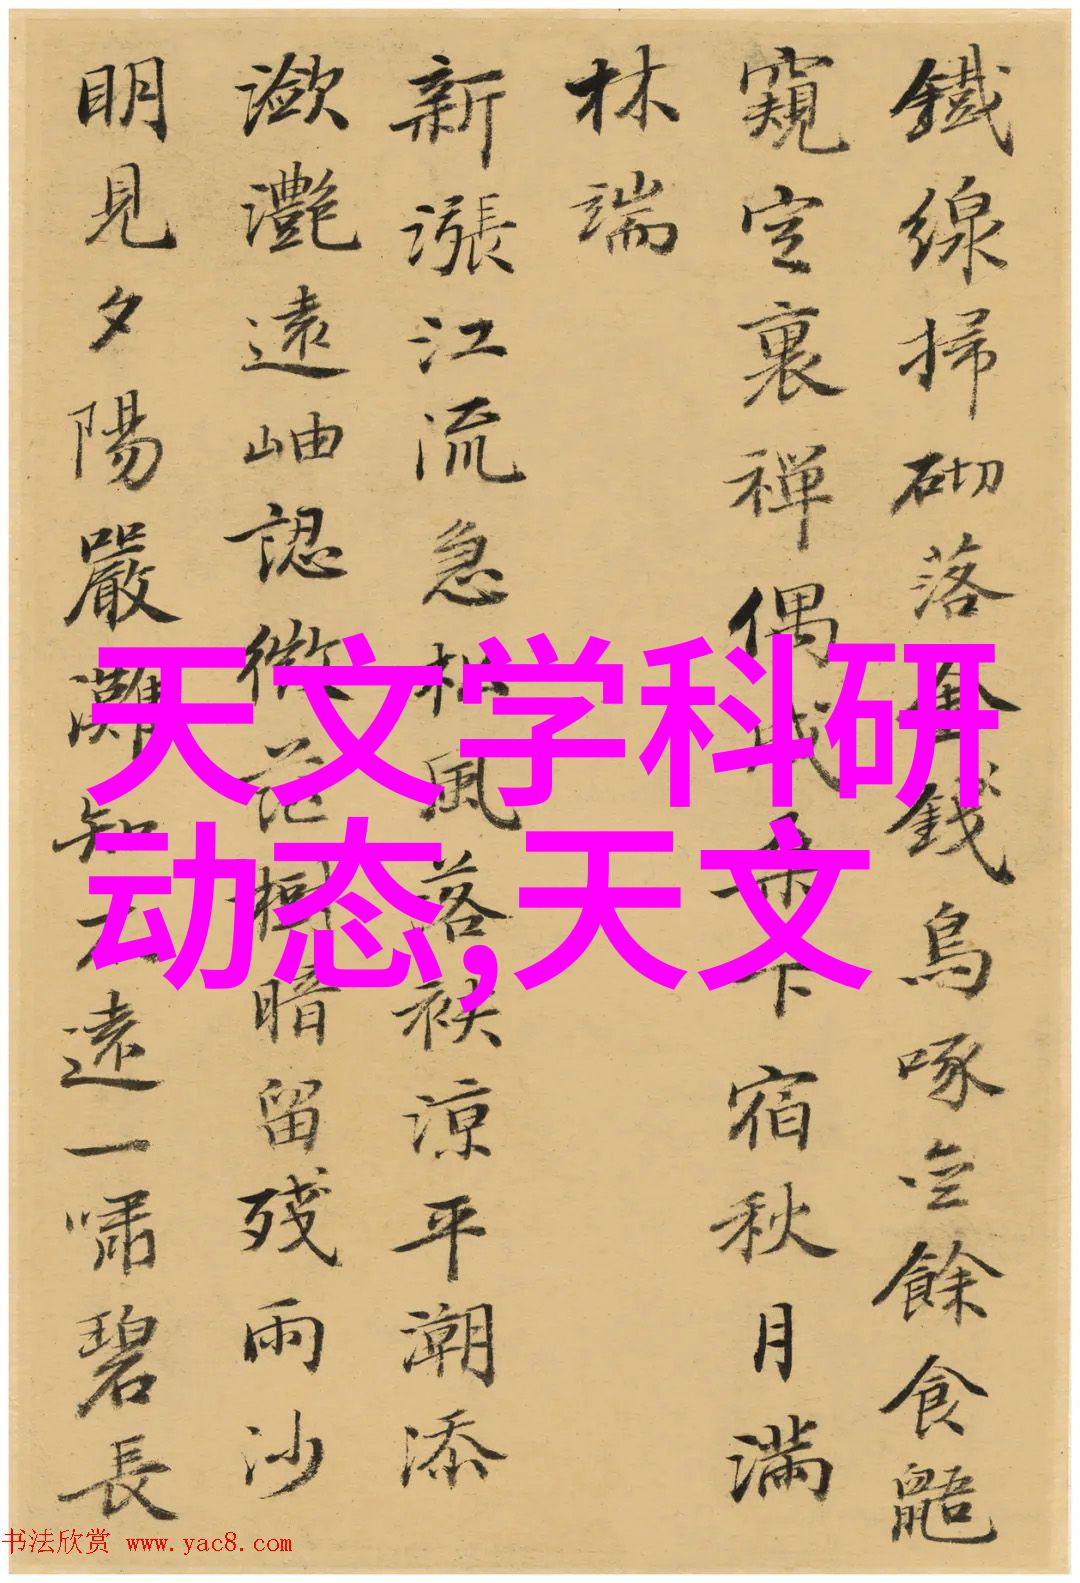 鐵線掃砌落金錢烏啄空餘食鼯
窺定裏禪偶成來下宿秋月滿
林端
新漲江流急松風落袂涼平潮添
瀲灩遠岫認微茫樹暗留殘雨沙
明見夕陽嚴灘知不遠一嘯碧長
天文学科研
动态,天文
书法欣赏 www.yac8.com